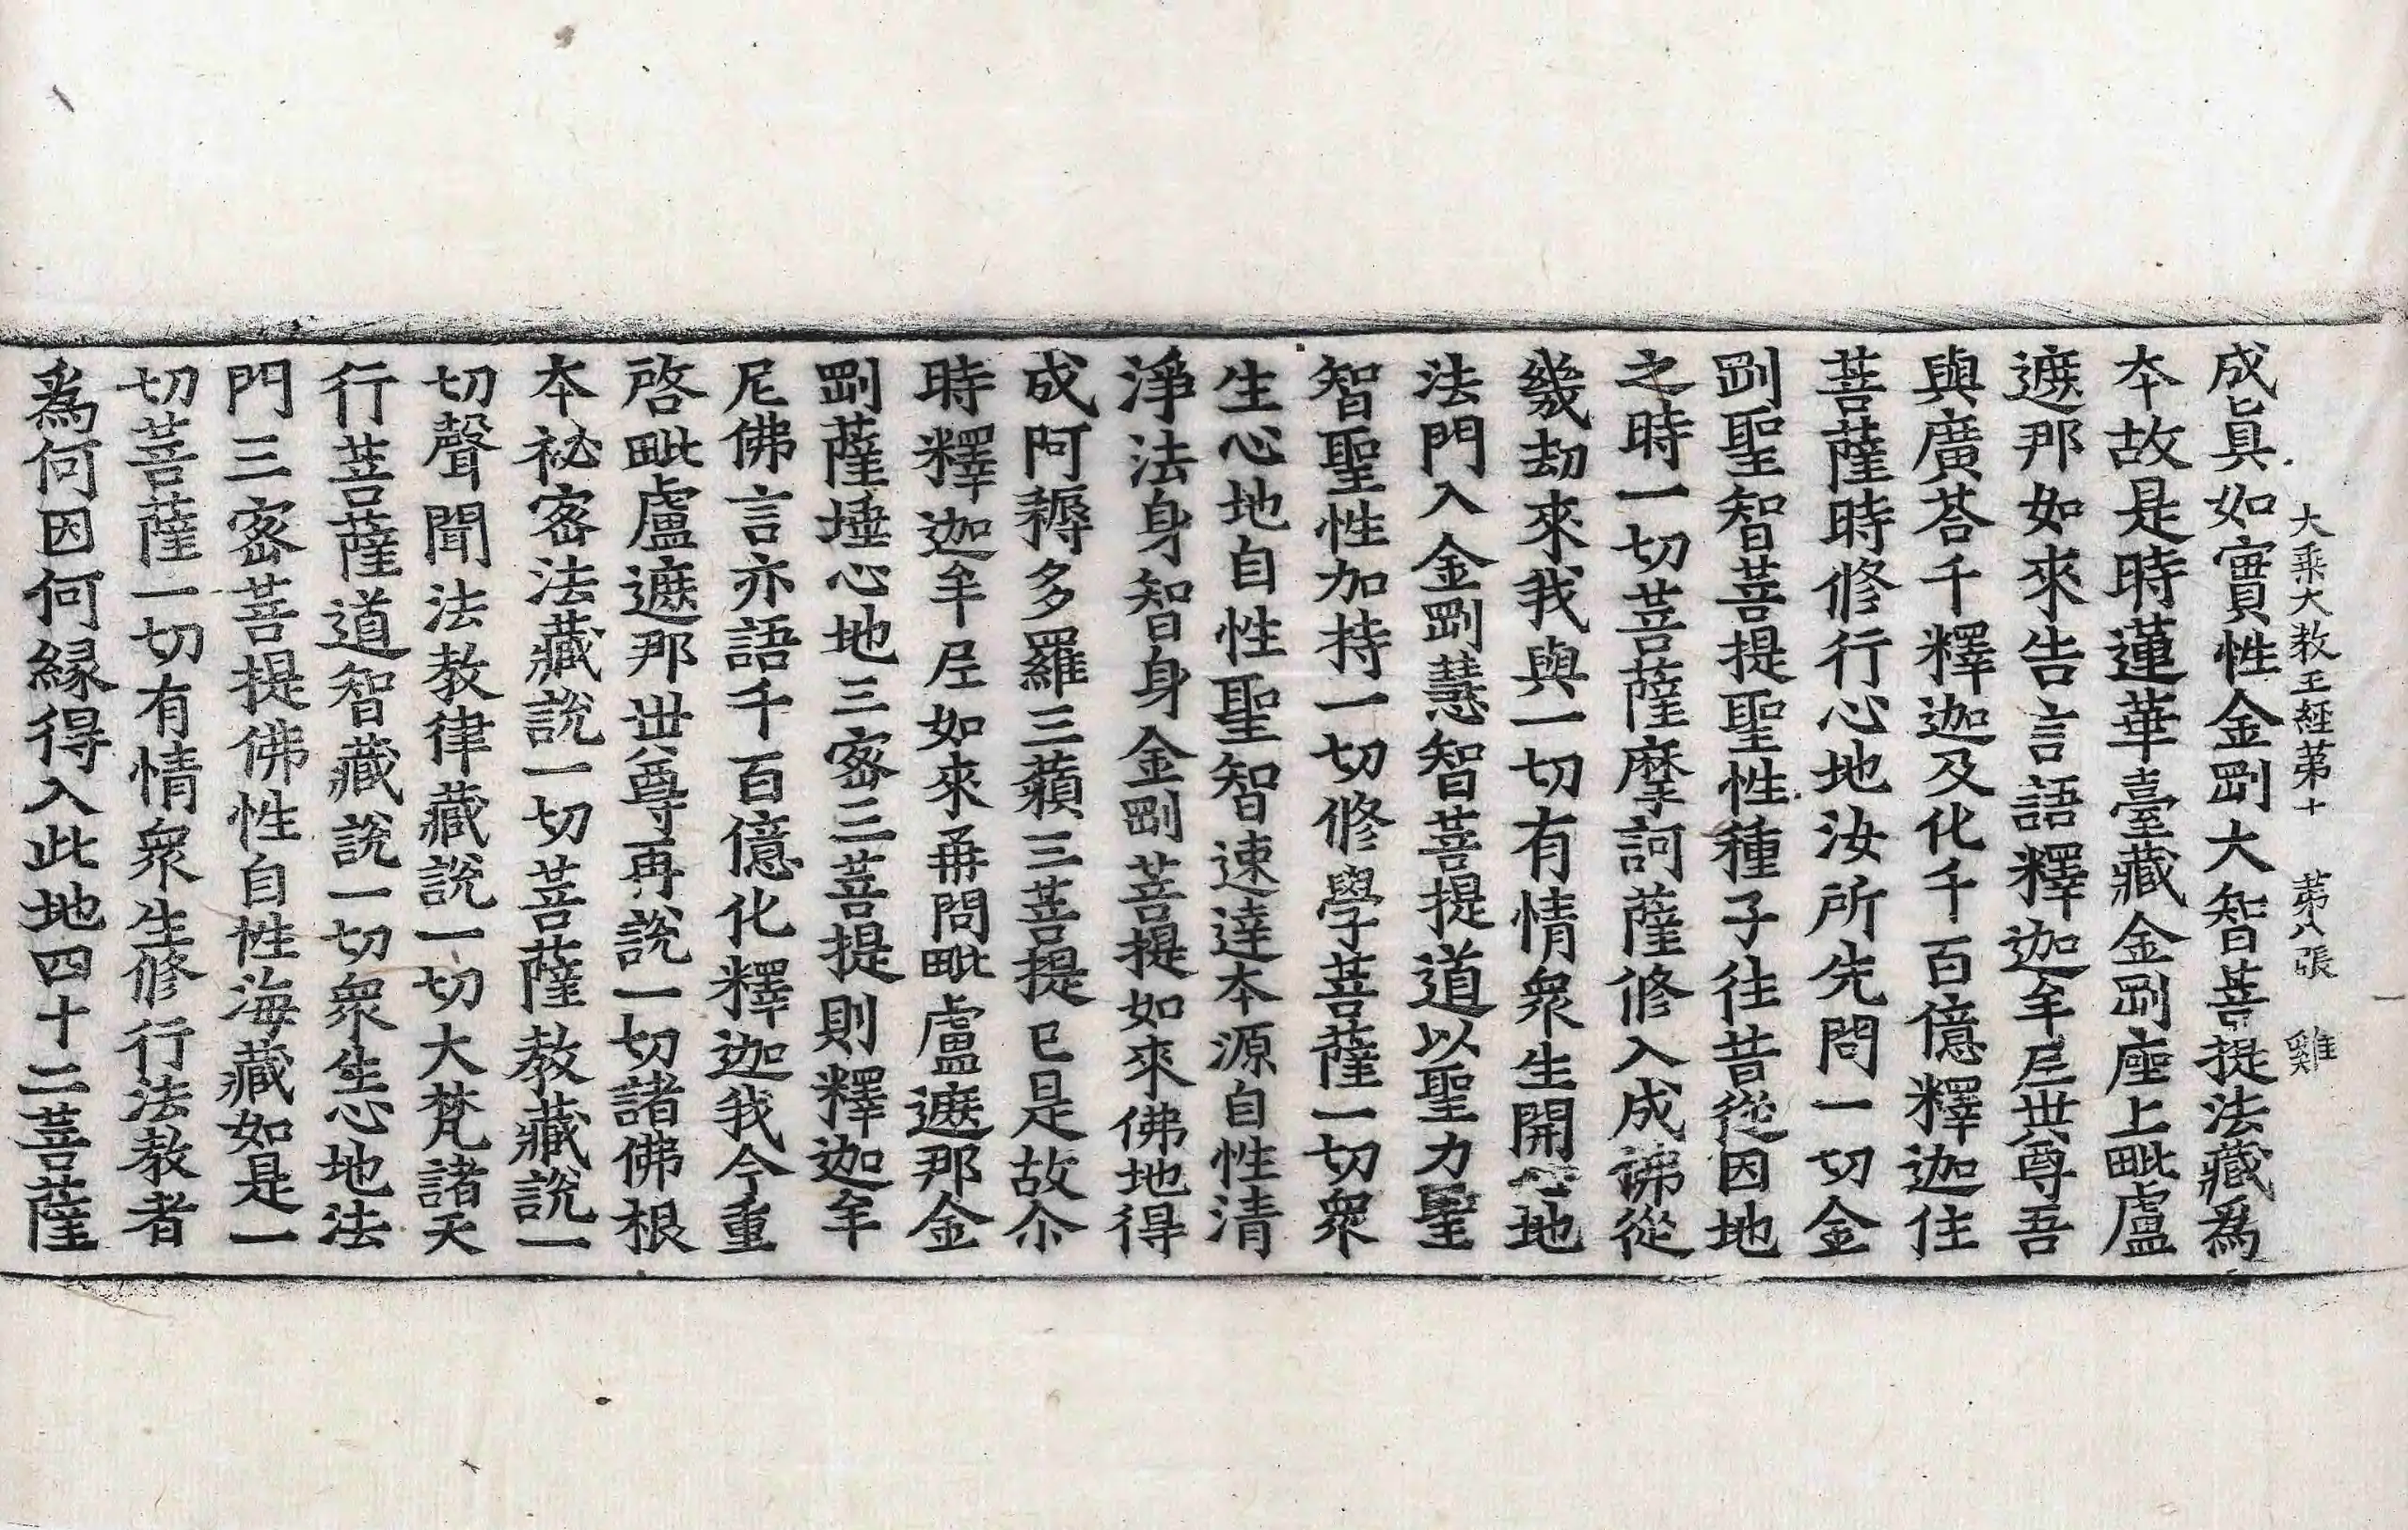 大乘大教王經第十 第八張 雞
成眞如實性金剛大智菩提法藏爲
本故是時蓮華臺藏金剛座上毗盧
遮那如來告言語釋迦牟尼世尊吾
與廣荅千釋迦及化千百億釋迦住
菩薩時修行心地汝所先問一切金
剛聖智菩提聖性種子往昔從因地
之時一切菩薩摩訶薩修入成佛從
幾劫來我與一切有情衆生開心地
法門入金剛慧智菩提道以聖力聖
智聖性加持一切修學菩薩一切衆
生心地自性聖智速達本源自性清
淨法身智身金剛菩提如來佛地得
成阿耨多羅三藐三菩提已是故尒
時釋迦牟尼如來再問毗盧遮那金
剛薩埵心地三密三菩提則釋迦牟
尼佛言亦語千百億化釋迦我今重
啓毗盧遮那世尊再說一切諸佛根
本祕密法藏說一切菩薩教藏說一
切聲聞法教律藏說一切大梵諸天
行菩薩道智藏說一切衆生心地法
門三密菩提佛性自性海藏如是一
切菩薩一切有情衆生修行法教者
爲何因何緣得入此地四十二菩薩